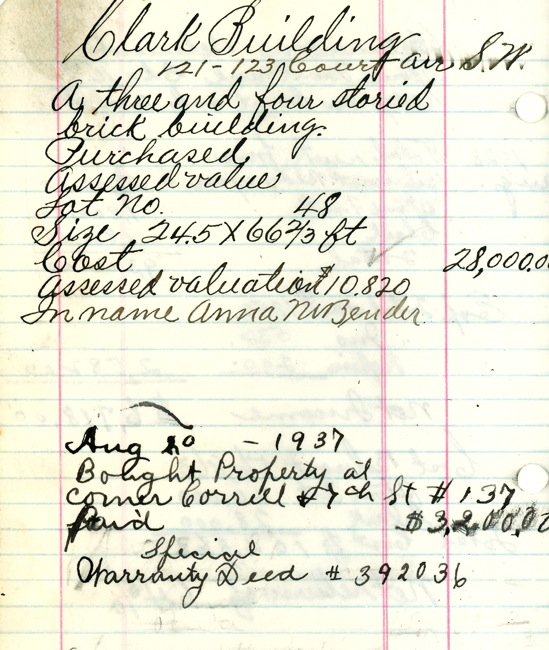 Clark Building
121-123 Court av S.W.
A three and four storied
brick building.
Purchased
Assessed value
Lot No. 48
Size 24.5 X 66 2/3 ft
Cost 28,000.0
Assessed valuation $10.820
In name Anna M Bender
Aug 20 - 1937
Bought Property at
corner Correll & 7th St # 137
Paid $3,200.00
Special
Warranty Deed # 392036